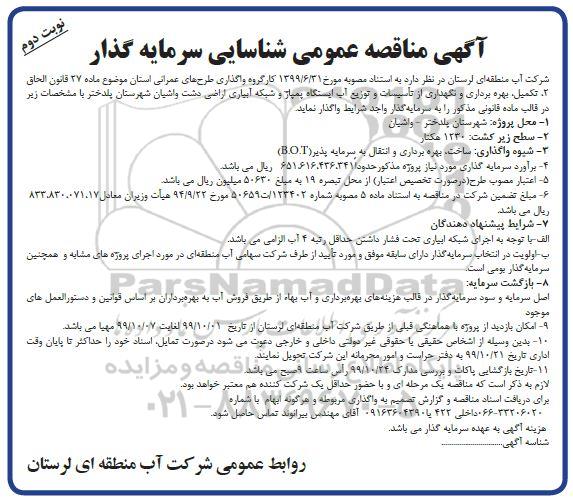 نوبت دوم
آگهی مناقصه عمومی شناسایی سرمایه گذار
شرکت آب منطقه‌ای لرستان در نظر دارد به استناد مصوبه مورخ ۱۳۹۹/۶/۳۱ کارگروه واگذاری طرح‌های عمرانی استان موضوع ماده ۲۷ قانون الحاق
۲، تکمیل، بهره برداری و نگهداری از تأسیسات و توزیع آب ایستگاه پمپاژ و شبکه آبیاری اراضی دشت واشیان شهرستان پلدختر با مشخصات زیر
در قالب ماده قانونی مذکور را به سرمایه‌گذار واجد شرایط واگذار نماید.
۱- محل پروژه: شهرستان پلدختر - واشیان
۲- سطح زیر کشت: ۱۲۳۰ هکتار
۳- شیوه واگذاری: ساخت، بهره برداری و انتقال به سرمایه پذیر (B.O.T)
۴- برآورد سرمایه گذاری مورد نیاز پروژه مذکور حدوداً ۶۵۱،۶۱۶،۴۳۶،۳۴۱ ریال می باشد.
۵- اعتبار مصوب طرح (درصورت تخصیص اعتبار) از محل تبصره ۱۹ به مبلغ ۵۰۶۳۰ میلیون ریال می باشد.
۶- مبلغ تضمین شرکت در مناقصه به استناد ماده ۵ مصوبه شماره ۱۲۳۴۰۲/ت۵۰۶۵۹ مورخ ۹۴/۹/۲۲ هیأت وزیران معادل ۸۳۳،۸۳۰،۰۷۱،۱۷
ریال می باشد.
۷- شرایط پیشنهاد دهندگان
الف-با توجه به اجرای شبکه آبیاری تحت فشار داشتن حداقل رتبه ۴ آب الزامی می باشد.
ب-اولویت در انتخاب سرمایه‌گذار دارای سابقه موفق و مورد تأیید از طرف شرکت سهامی آب منطقه‌ای در مورد اجرای پروژه های مشابه و همچنین
سرمایه‌گذار بومی است.
۸- بازگشت سرمایه:
اصل سرمایه و سود سرمایه‌گذار در قالب هزینه‌های بهره‌برداری و آب بهاء از طریق فروش آب به بهره‌برداران بر اساس قوانین و دستورالعمل های
موجود
۹- امکان بازدید از پروژه با هماهنگی قبلی از طریق شرکت آب منطقه‌ای لرستان از تاریخ ۹۹/۱۰/۰۱ لغایت ۹۹/۱۰/۰۷ مهیا می باشد.
۱۰- بدین وسیله از اشخاص حقیقی یا حقوقی غیر دولتی داخلی و خارجی دعوت می شود درصورت تمایل، اسناد خود را حداکثر تا پایان وقت
اداری تاریخ ۹۹/۱۰/۲۱ به دفتر حراست و امور محرمانه این شرکت تحویل نمایند.
۱۱-تاریخ بازگشایی پاکات و بررسی مدارک ۹۹/۱۰/۲۴ رأس ساعت ۹صبح می باشد.
لازم به ذکر است که مناقصه یک مرحله ای و با حضور حداقل یک شرکت کننده هم معتبر خواهد بود.
برای دریافت اسناد مناقصه و گزارش تصمیم به واگذاری مربوطه و هرگونه ابهام با شماره
۰۶۶-۳۳۲۰۶۰۲۰ داخلی ۴۲۲ یا ۰۹۱۶۳۶۰۴۳۹۰ آقای مهندس بیرانوند تماس حاصل شود.
هزینه آگهی به عهده سرمایه گذار می باشد.
شناسه آگهی..............................
روابط عمومی شرکت آب منطقه ای لرستان
ParsNamadData
۰۲۱-۸۸۳۴۹۶۷۰-۵